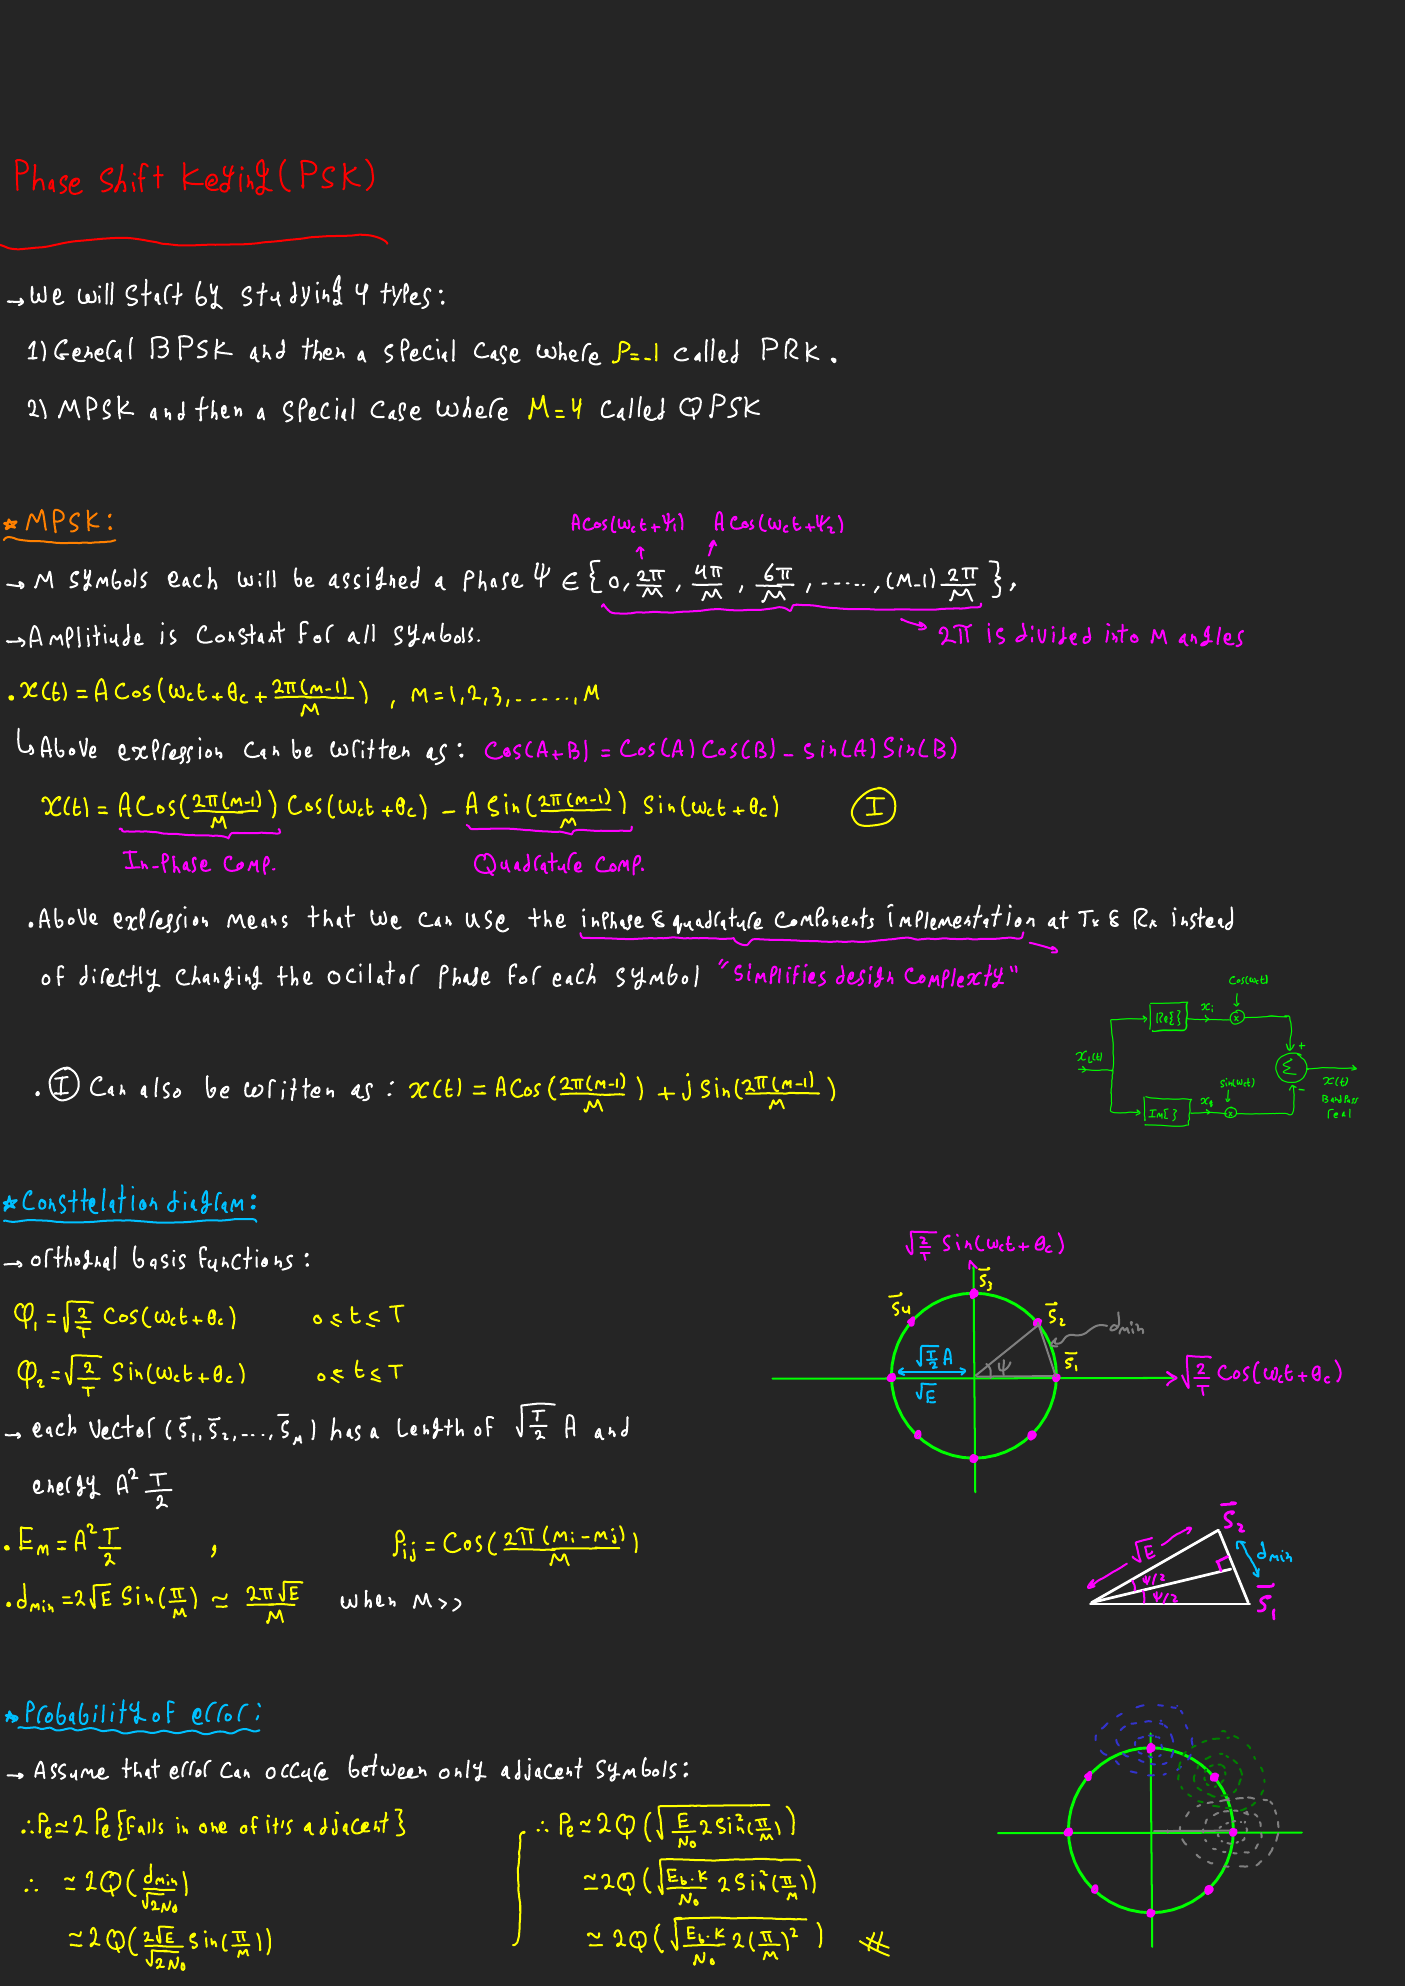 Phase Shift Keying (PSK)
→ We will start by studying 4 types:
1) General BPSK and then a special case where ρ=-1 called PRK.
2) MPSK and then a special case where M=4 called QPSK
* MPSK:
A Cos(ωct+Ψ1) A Cos(ωct+Ψ2)
→ M symbols each will be assigned a phase Ψ ∈ {0, 2π/M, 4π/M, 6π/M, ....., (M-1) 2π/M},
→ Amplitiude is constant for all symbols.
→ 2π is divided into M angles
. x(t) = A Cos(ωct+θc+ 2π(m-1)/M) , m=1,2,3,......,M
↳ Above expression can be written as: Cos(A+B) = Cos(A) Cos(B) - Sin(A) Sin(B)
x(t) = A Cos(2π(m-1)/M) Cos(ωct+θc) - A Sin(2π(m-1)/M) Sin(ωct+θc) (I)
In-Phase Comp. Quadrature Comp.
. Above expression means that we can use the inphase & quadrature components implementation at Tx & Rx instead
of directly changing the ocilator phase for each symbol "Simplifies design Complexty"
Cos(ωct)
Re{} xi ×
xL(t) Σ + -
Sin(ωct)
x(t)
Im{} xq ×
BandPass
real
. (I) Can also be written as : x(t) = A Cos(2π(m-1)/M) + j Sin(2π(m-1)/M)
* Consttelation diagram:
→ orthognal basis functions:
φ1 = √(2/T) Cos(ωct+θc) 0 ≤ t ≤ T
φ2 = √(2/T) Sin(ωct+θc) 0 ≤ t ≤ T
√(2/T) Sin(ωct+θc)
S̄3
S̄4 S̄2
dmin
√(T/2) A Ψ S̄1
√(2/T) Cos(ωct+θc)
√E
→ each vector (S̄1, S̄2, ..., S̄M) has a length of √(T/2) A and
energy A² T/2
. Em = A² T/2 , ρij = Cos(2π(mi-mj)/M)
. dmin = 2√E Sin(π/M) ≃ 2π√E/M when M>>
S̄2
√E dmin
Ψ/2
Ψ/2 S̄1
* Probability of error:
→ Assume that error can occure between only adjacent symbols:
∴ Pe ≃ 2 Pe{Falls in one of it's adjacent}
∴ ≃ 2Q(dmin/√2N0)
≃ 2Q(2√E/√2N0 Sin(π/M))
∴ Pe ≃ 2Q(√(E/N0 2Sin²(π/M)))
≃ 2Q(√(Eb.K/N0 2Sin²(π/M)))
≃ 2Q(√(Eb.K/N0 2(π/M)²)) #